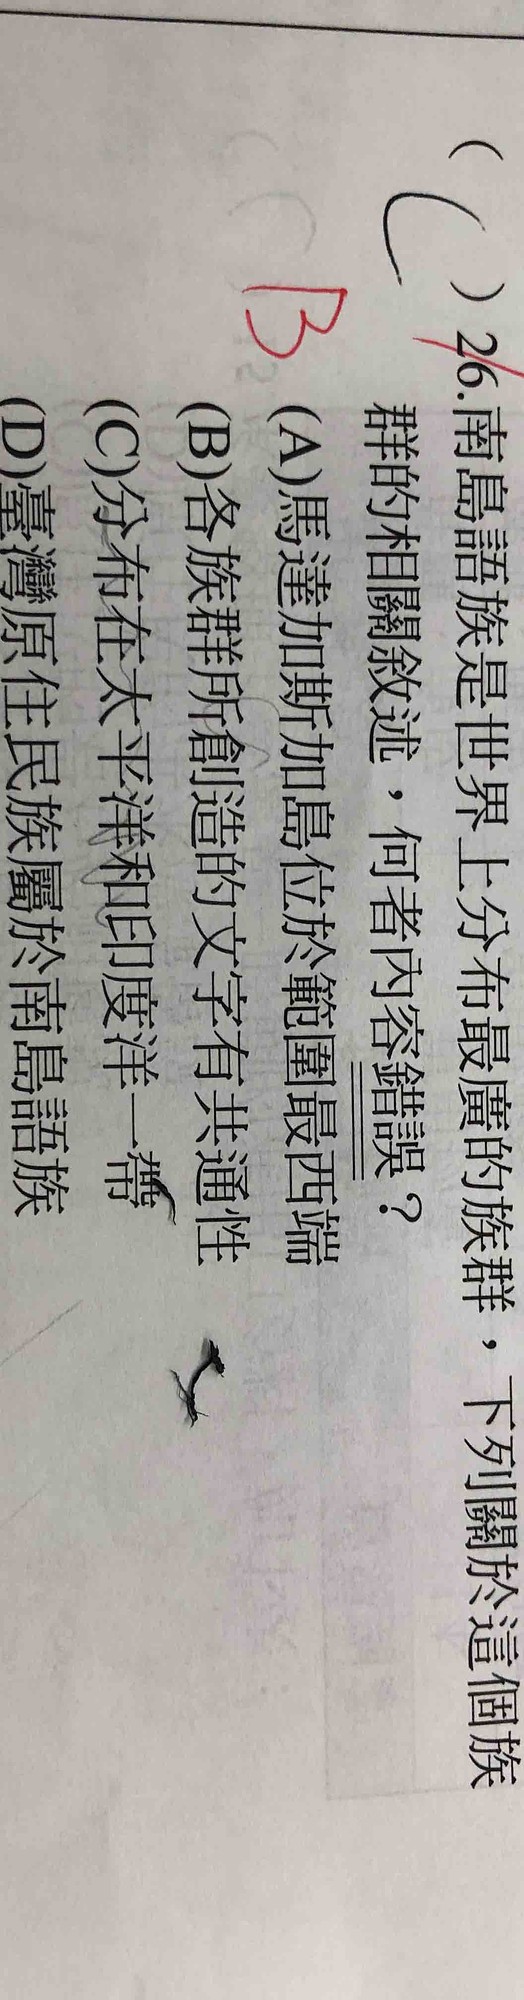 ( C ) 26.南島語族是世界上分布最廣的族群，下列關於這個族
群的相關敘述，何者內容錯誤？
B
(A)馬達加斯加島位於範圍最西端
(B)各族群所創造的文字有共通性
(C)分布在太平洋和印度洋一帶
(D)臺灣原住民族屬於南島語族